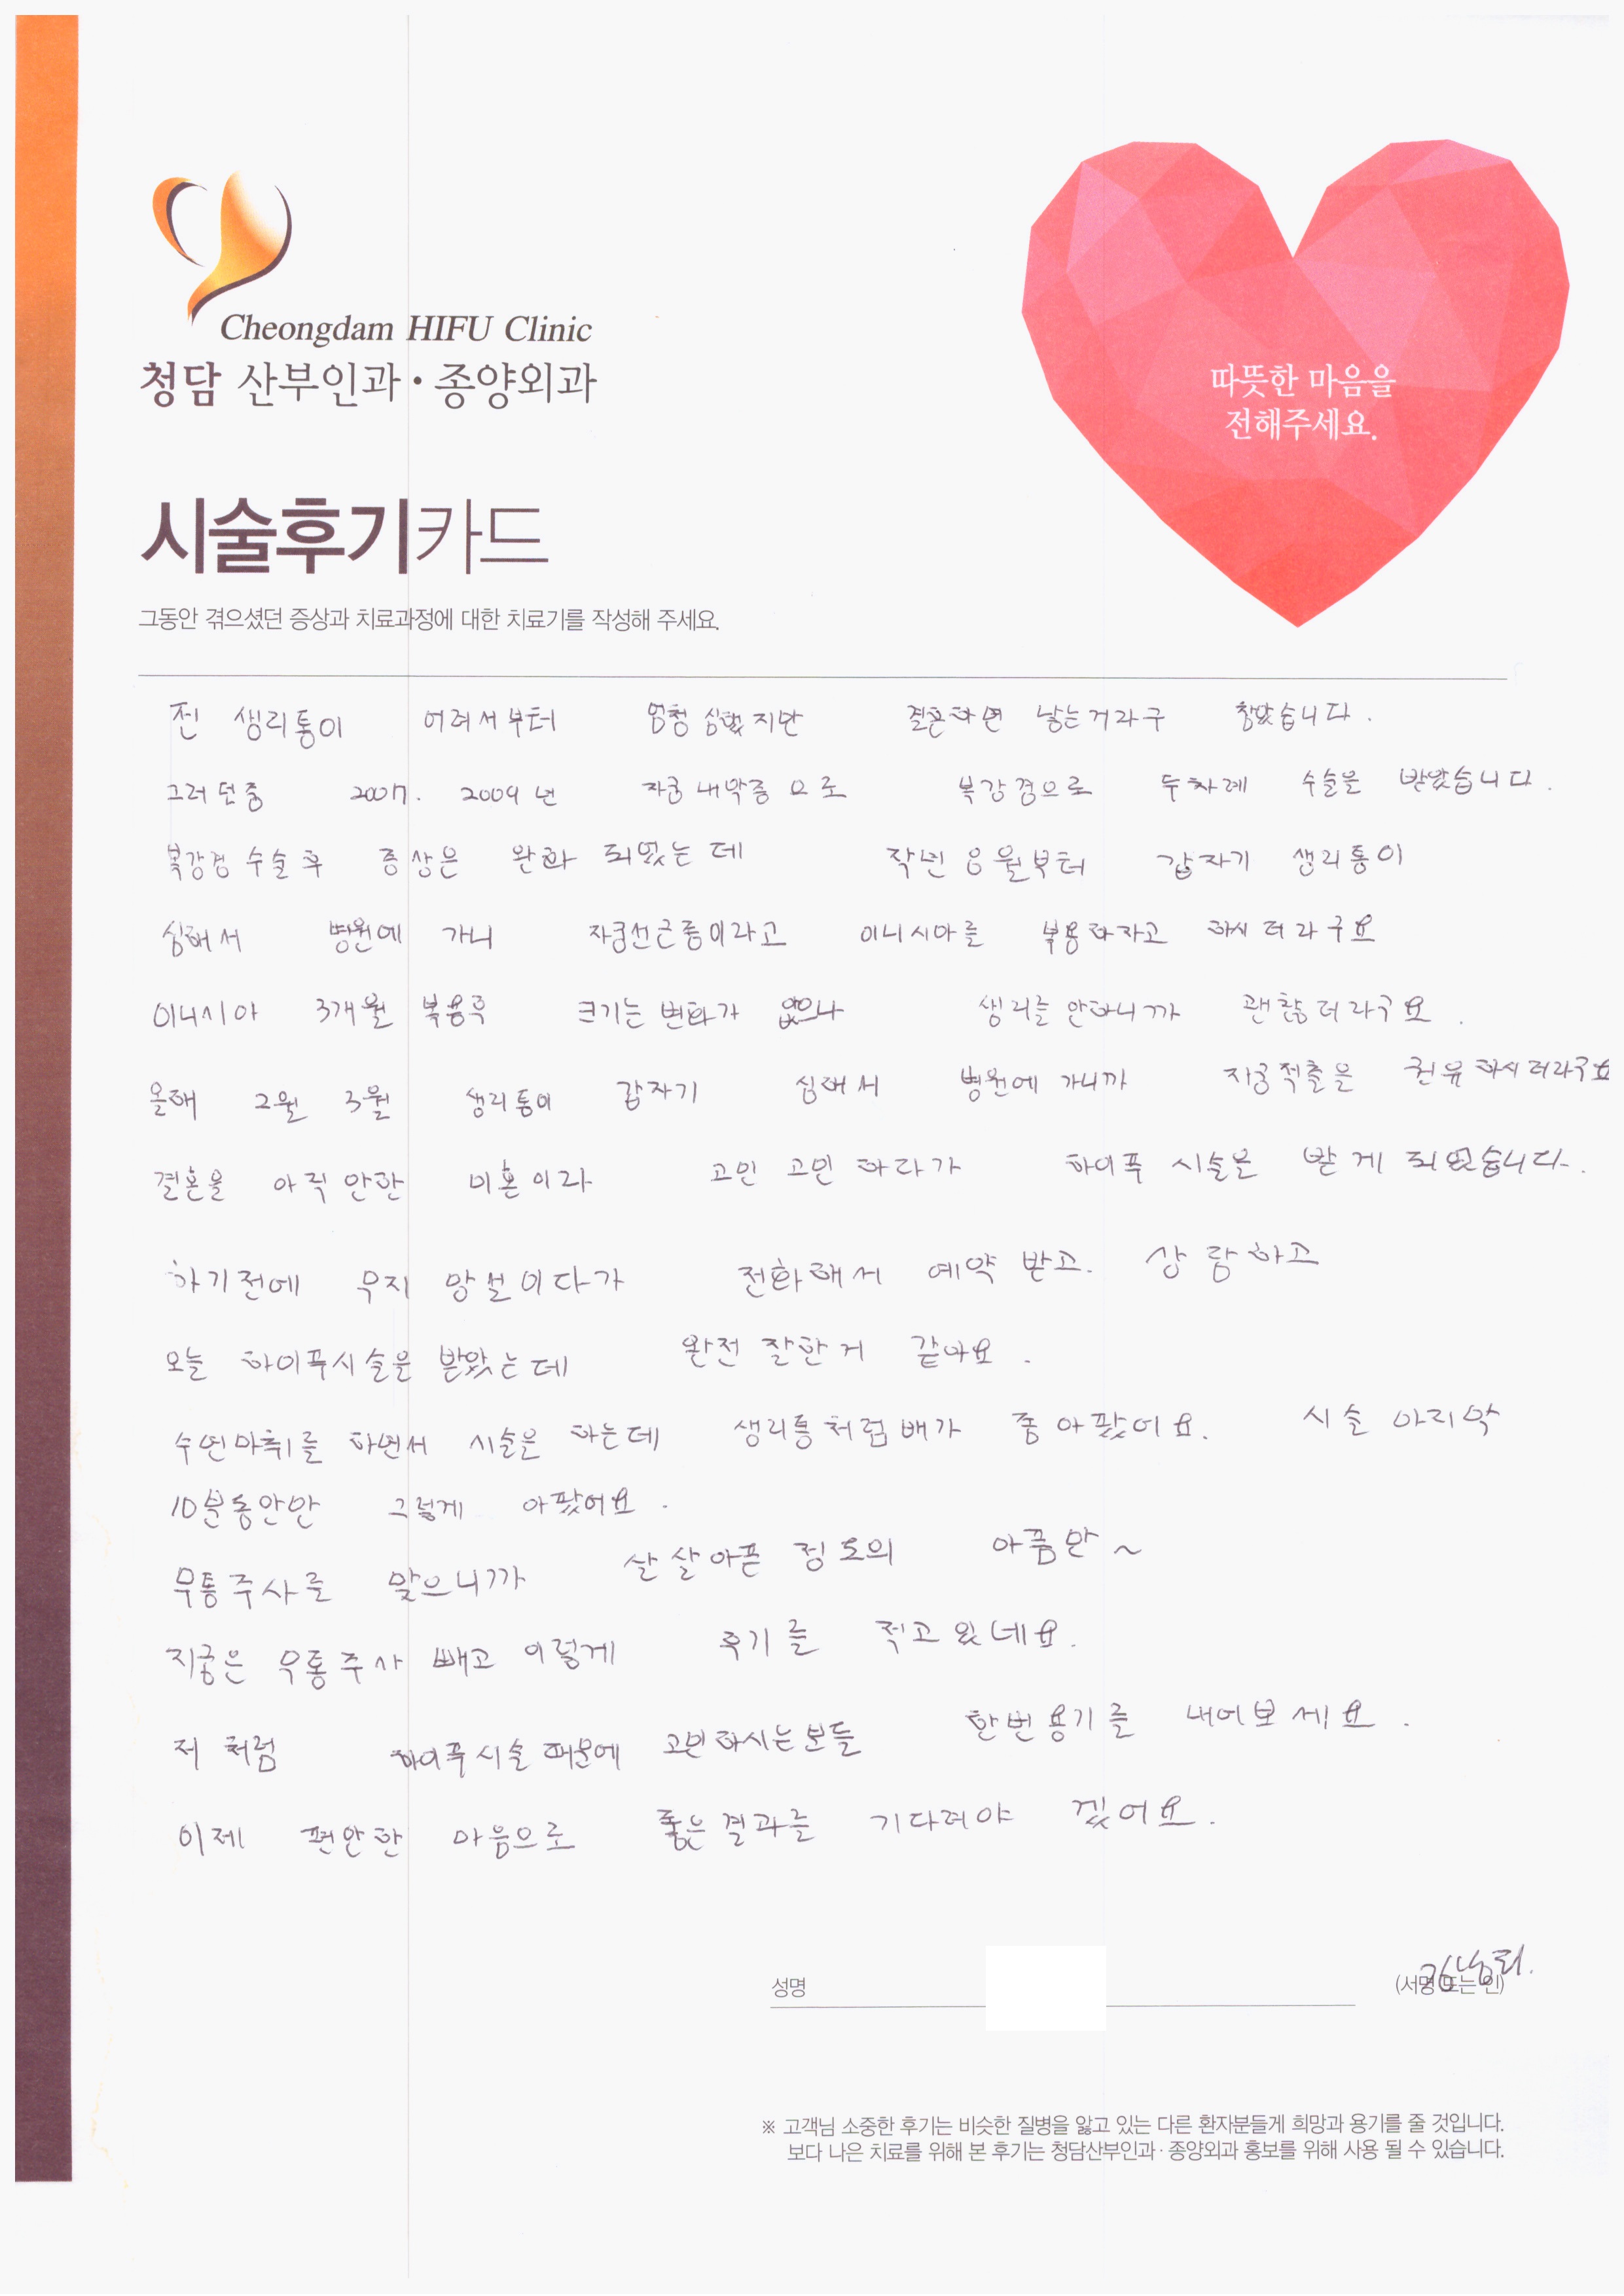 Cheongdam HIFU Clinic
청담 산부인과·종양외과
따뜻한 마음을
전해주세요.
시술후기카드
그동안 겪으셨던 증상과 치료과정에 대한 치료기를 작성해 주세요.
전 생리통이 어려서부터 엄청 심했지만 결혼하면 낳는거라구 참았습니다.
그러던중 2007. 2009년 자궁내막증으로 복강경으로 두차례 수술을 받았습니다.
복강경 수술후 증상은 완화 되었는데 작년 8월부터 갑자기 생리통이
심해서 병원에 가니 자궁선근증이라고 이니시아를 복용하자고 하시더라구요
이니시아 3개월 복용후 크기는 변화가 없으나 생리를 안하니까 괜찮더라구요.
올해 2월 3월 생리통이 갑자기 심해서 병원에 가니까 자궁적출을 권유하시더라구요
결혼을 아직 안한 미혼이라 고민 고민 하다가 하이푸 시술을 받게 되었습니다.
하기전에 무지 망설이다가 전화해서 예약 받고. 상담하고
오늘 하이푸시술을 받았는데 완전 잘한거 같아요.
수면마취를 하면서 시술을 하는데 생리통처럼 배가 좀 아팠어요. 시술 마지막
10분동안만 그렇게 아팠어요.
무통주사를 맞으니까 살살아픈 정도의 아픔만~
지금은 무통주사 빼고 이렇게 후기를 적고있네요.
저 처럼 하이푸시술 때문에 고민하시는분들 한번 용기를 내어보세요.
이제 편안한 마음으로 좋은결과를 기다려야 겠어요.
성명 (서명 또는 인)
※ 고객님 소중한 후기는 비슷한 질병을 앓고 있는 다른 환자분들게 희망과 용기를 줄 것입니다.
보다 나은 치료를 위해 본 후기는 청담산부인과·종양외과 홍보를 위해 사용 될 수 있습니다.